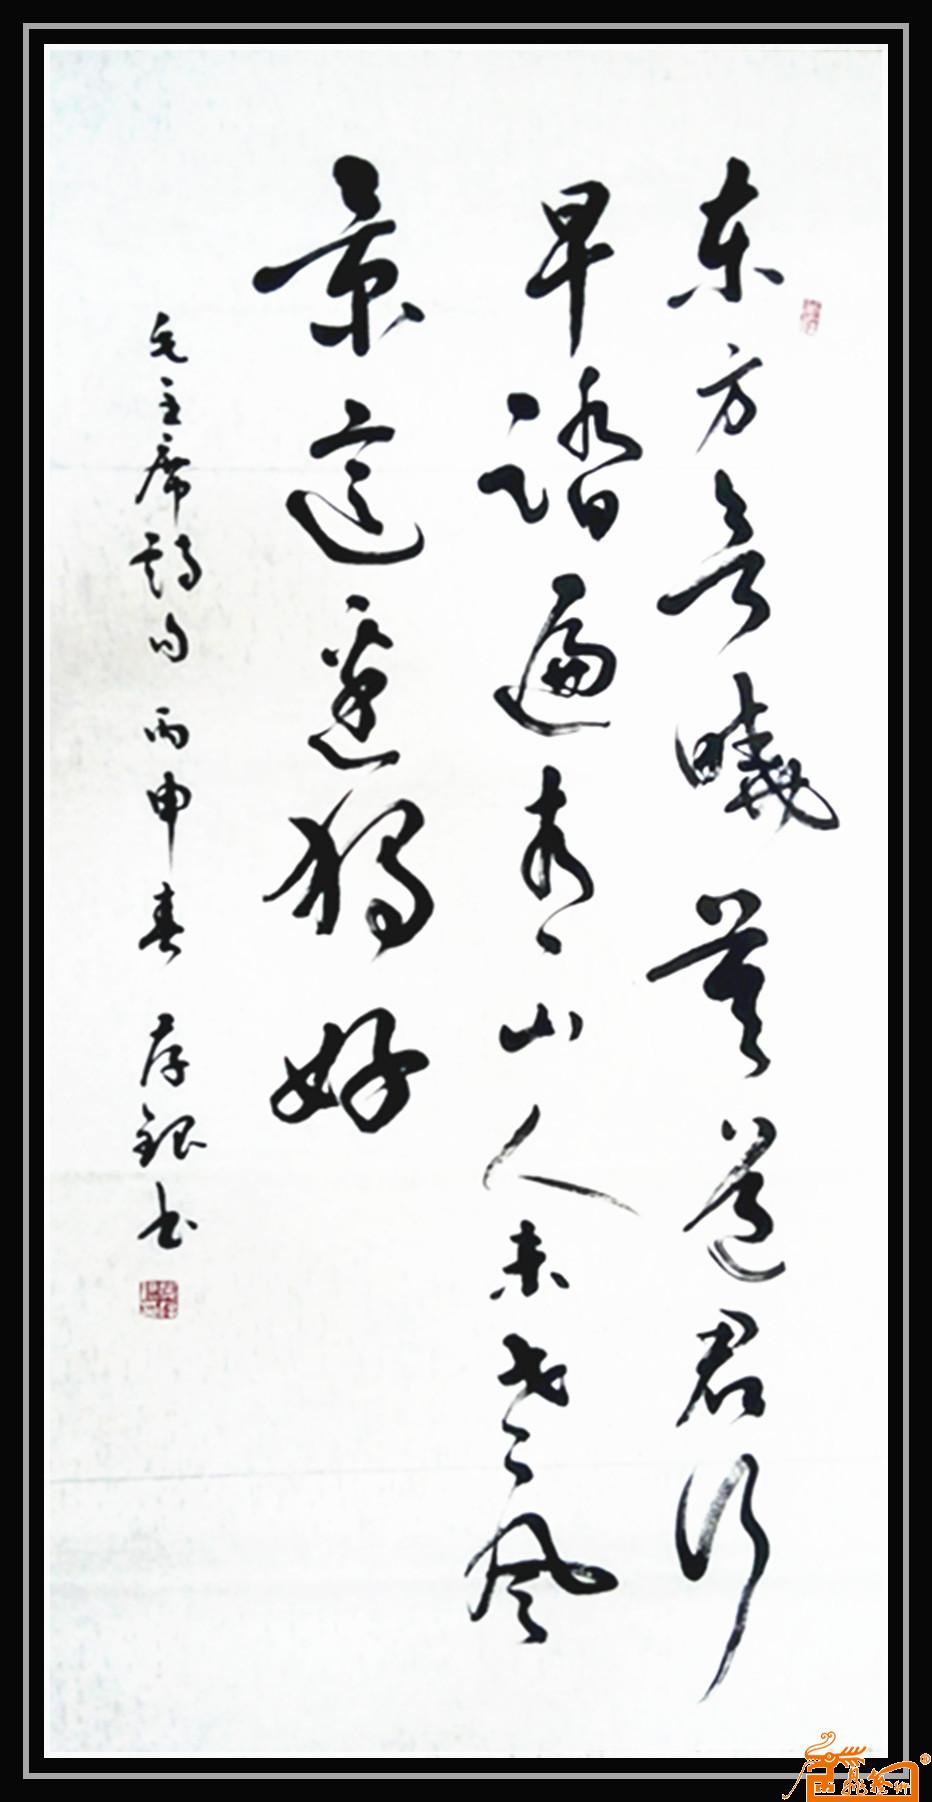 东方欲晓莫道君行
早踏遍青山人未老风
景这边独好
毛主席诗句丙申春存银书